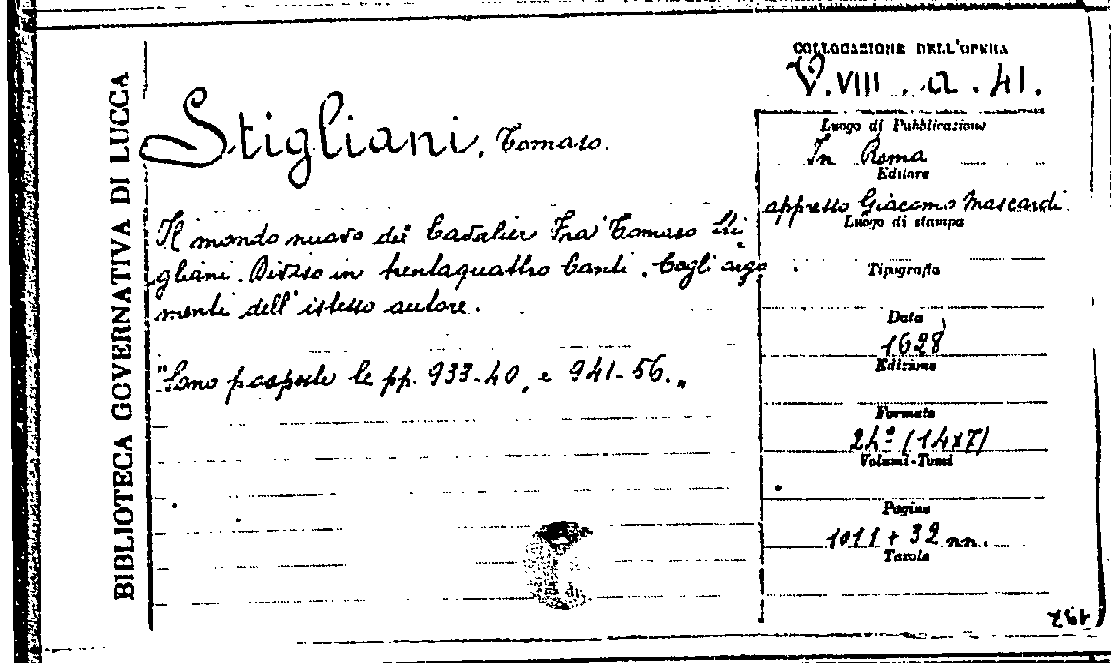 BIBLIOTECA GOVERNATIVA DI LUCCA
COLLOCAZIONE DELL'OPERA
V.VIII.a.41.
Stigliani, Tomaso.
Il mondo nuovo del Cavalier Fra Tomaso Sti
gliani. Diviso in trentaquattro Canti. Cogli argo
menti dell'istesso autore.
"Sono posposte le pp. 933-40, e 941-56."
Luogo di Pubblicazione
In Roma
Editore
appresso Giacomo Mascardi
Luogo di stampa
Tipografia
Data
1628
Edizione
Formato
24º (14x7)
Volumi-Tomi
Pagine
1011 + 32 nn.
Tavole